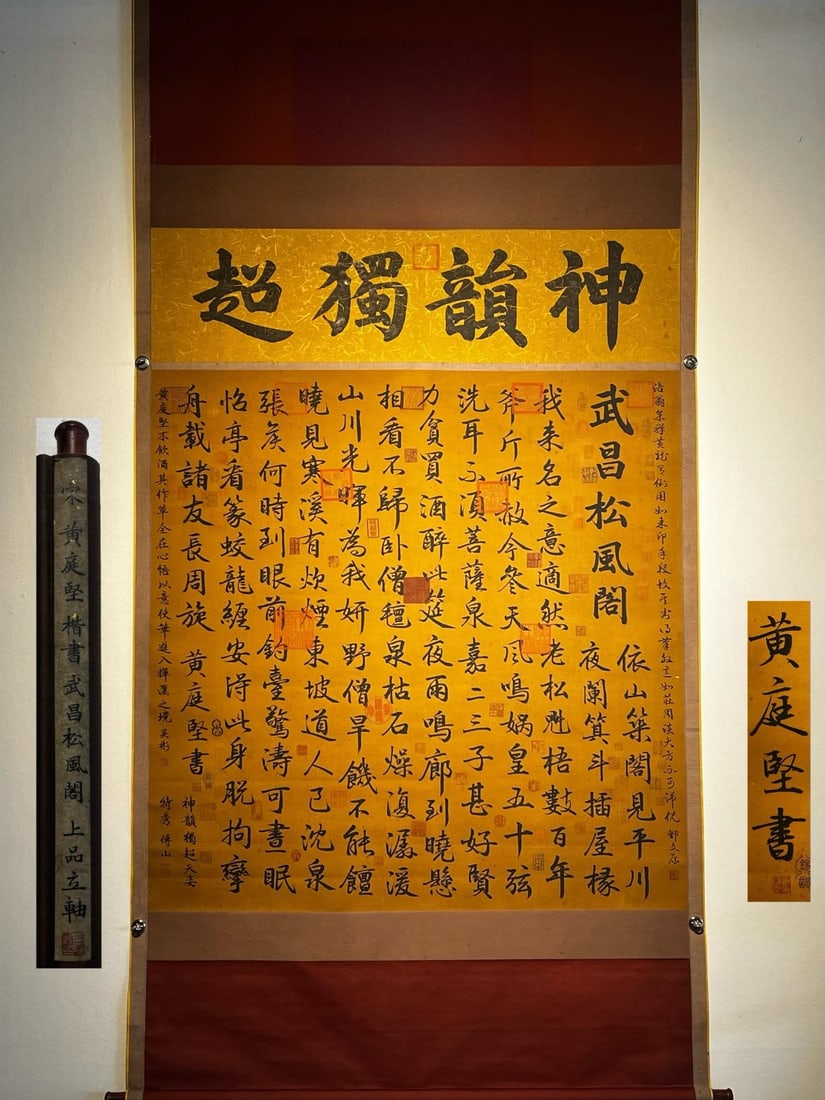 神韻獨超
如莊周談大方不可端倪 鄧文原
武昌松風閣
依山築閣見平川
夜闌箕斗插屋椽
我来名之意適然老松魁梧數百年
斧斤所赦今參天風鳴媧皇五十弦
洗耳不須菩薩泉嘉二三子甚好賢
力貧買酒醉此筵夜雨鳴廊到曉懸
相看不歸卧僧氊泉枯石燥復潺湲
山川光暉為我妍野僧旱饑不能饘
曉見寒溪有炊煙東坡道人已沈泉
張侯何時到眼前釣臺驚濤可晝眠
怡亭看篆蛟龍纏安得此身脱拘攣
舟載諸友長周旋 黃庭堅書
神韻獨超天姿
特秀 傅山
黃庭堅不飲酒其作草全在心悟以意使筆進入揮灑之境 吳彬
宋 黃庭堅 楷書武昌松風閣 上品立軸
黃庭堅書